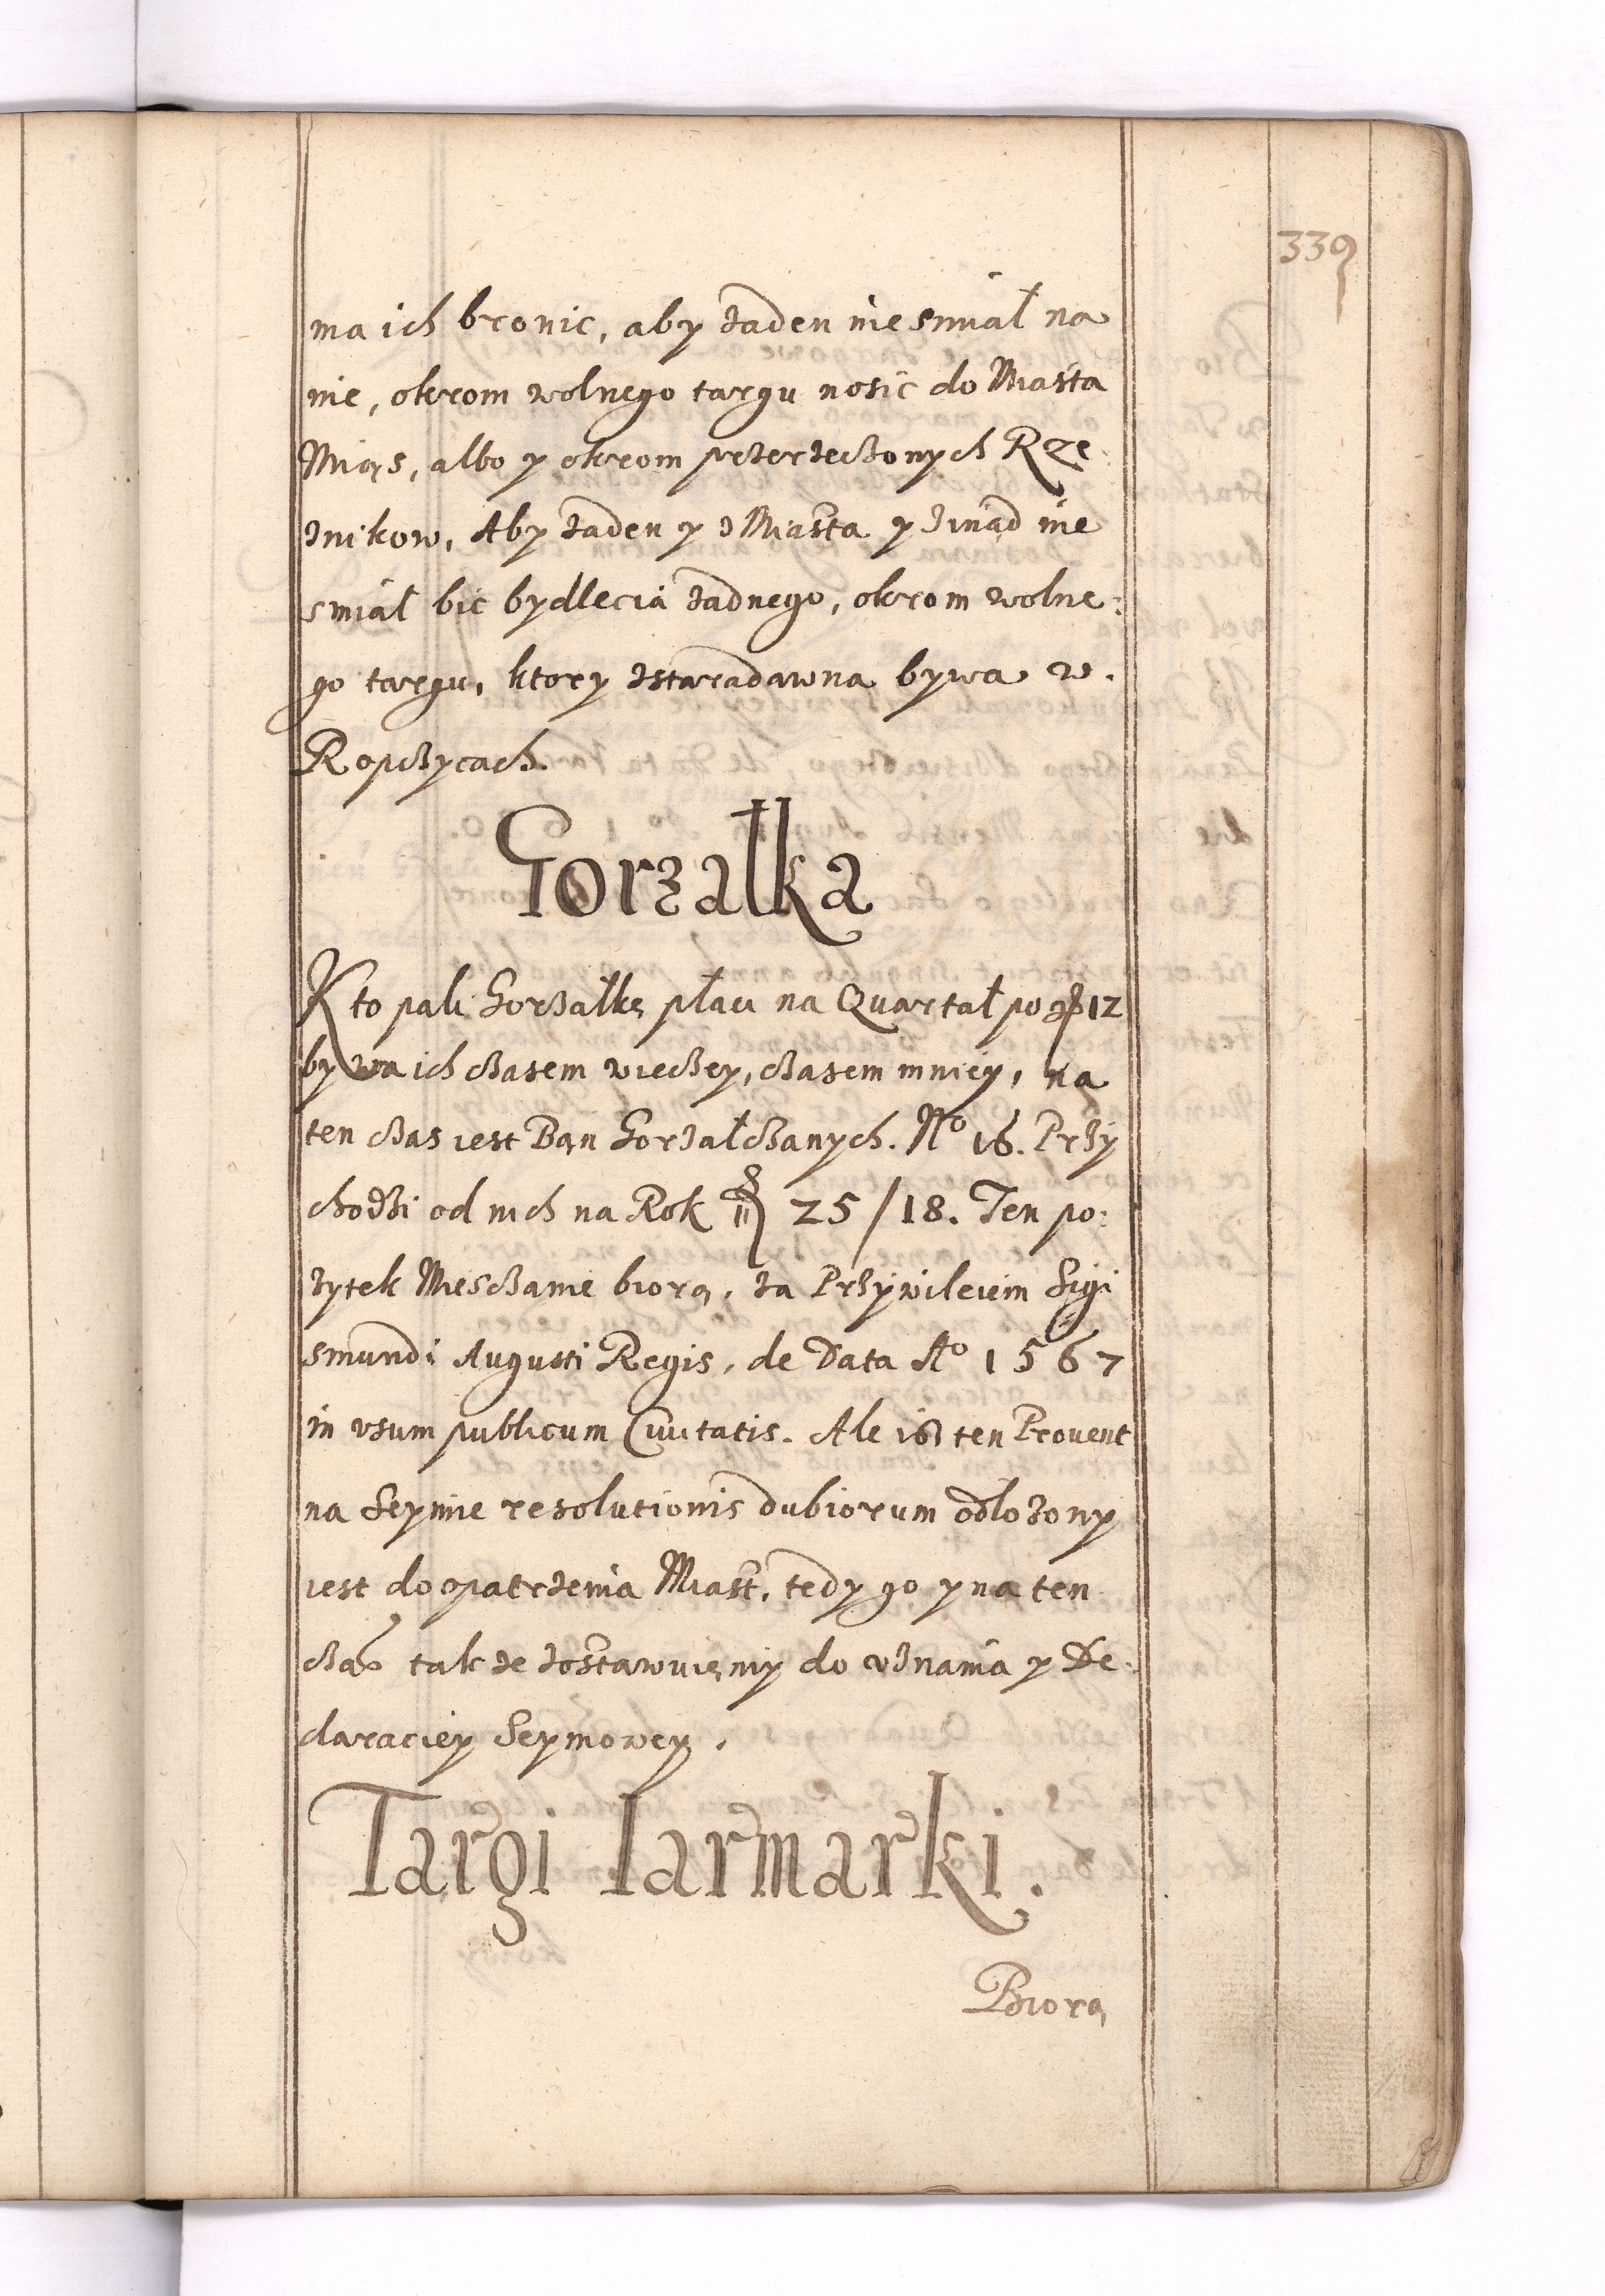 339
ma ich bronic, aby zaden nie smiał na
nie, okrom wolnego targu nosić do Miasta
Mięs, albo y okrom przerzeczonych Rze
znikow, Aby zaden y z Miasta y zinąd nie
smiał bić bydlecia zadnego, okrom wolne:
go targu, ktory zstaradawna bywa w.
Ropczycach.
Gorzałka
Kto pali Gorzałkę płaci na Quartał po gr 12
bywa ich czasem wieczey, czasem mniey, na
ten czas iest Ban Gorzałczanych. No 16. Przy
chodzi od nich na Rok 25/18. Ten po:
zytek Miesczanie biorą, za Przywileiem Sigi
smundi Augusti Regis, de Data Ao 1567
in vsum publicum Ciuitatis. Ale isz ten Prouent
na Seymie resolutionis dubiorum odłozony
iest do opatrzenia Miast, tedy go y na ten
czas tak ze zostawuięmy do vznania y De:
claraciey Seymowey.
Targi Iarmarki.
Biorą